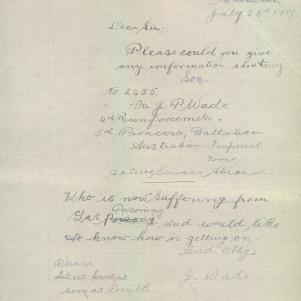 July 26th 1917
Dear Sir.
Please could you give
any imformation about my
Son.
No. 2455
J P Wade
4th Reinforcemets.
5th Pioneers, Battalion
Australian Imperial
Force
Active Service Abroad
Who is now Suffering from
Poisoning
Gas and would like
to know how is getting on.
and Oblg's
Please
Let us know as
soon as Possible
J. Wade